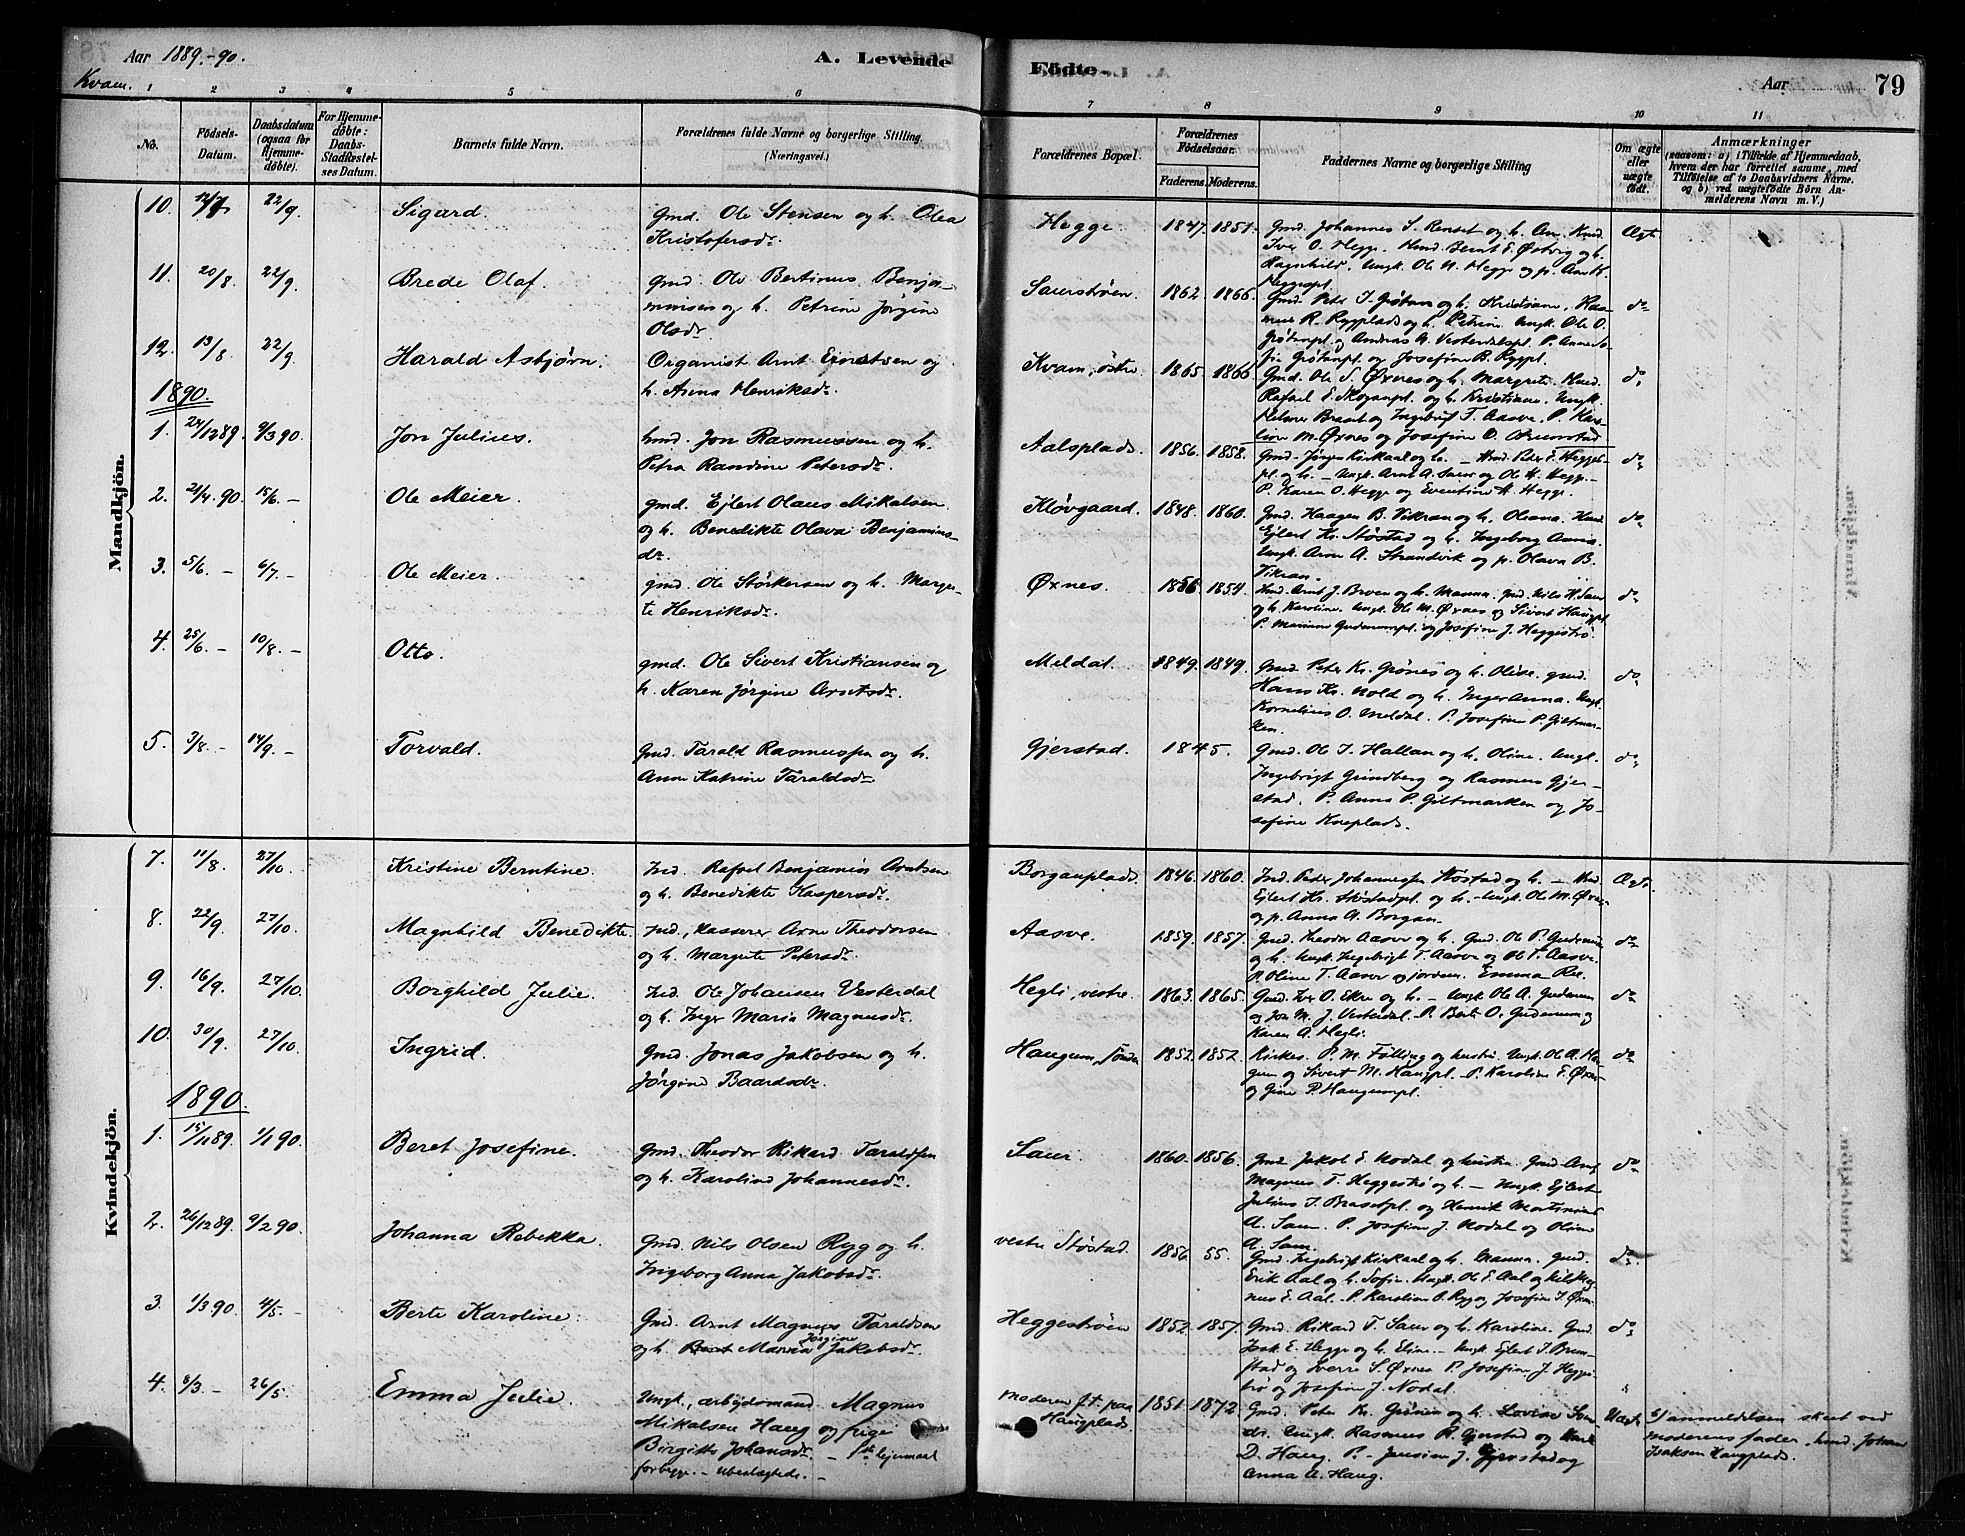 Aar 1889.-90.
A. Levende
Födte.
Aar
79
Kvam.
1 2 3 4 5 6 7 8 9 10 11
No.
Födsels-Datum.
Daabsdatum (ogsaa for Hjemme-döbte).
For Hjemme-döbte: Daabs-Stadfæstelses Datum.
Barnets fulde Navn.
Forældrenes fulde Navne og borgerlige Stilling.
(Næringsvei.)
Forældrenes Bopæl.
Forældrenes Födselsaar.
Faderens. Moderens.
Faddernes Navne og borgerlige Stilling
Om ægte eller uægte födt.
Anmærkninger
(saasom: a) i Tilfælde af Hjemmedaab, hvem der har forrettet samme, med Tilföielse af to Daabsvidners Navne. og b) ved uægtefödte Börn Anmelderens Navn m. V.)
Mandkjön.
10. 22/9. Sigard. Gmd. Ole Stensen og h. Olea
Kristofersdr.
Hegge. 1847. 1851. Gmd. Johannes S. Renset og h.
Iver O. Hegge. Bernt E. Østvig og h.
Ragnhild. Ungk. Ole N. Hegge og p.
Ægte.
11. 20/8. 22/9. Brede Olaf. Gmd. Ole Bertinus Benja-
minsen og h. Petrine Jørgine
Olsdr.
Saurstrøen. 1862. 1866. Gmd. Peter J. Grøtan og h. Kristiane.
R. Rygplads og h. Petrine. Ungk. Ole O.
do
12. 13/8. 22/9. Harald Asbjørn. Organist Arnt og
h. Anna Henriksdr.
Kvam, østre 1865. 1866 Gmd. Ole S. Øxnes og h. Margrete.
Rafael E. og h. Kristiane. Ungk.
og Ingebrigt T. Aasve. P.
M. Øxnes og Josefine O.
do
1890.
1. 24/12 89. 9/3 90. Jon Julius. hmd. Jon Rasmussen og h.
Petra Randine Petersdr.
Aalsplads. 1856. 1858. Gmd. Jørgen Kirkaal og h. — Hmd. Peder E. Hegge-
pl. og h. — Ungk. Arnt A. Saur og Ole H. Hegge.
P. Karen O. Hegge og Eventine H. Hegge.
do
2. 21/4. 90. 15/6. — Ole Meier. gmd. Ejlert Olaus Mikalsen
og h. Benedikte Olava Benjamins-
dr.
Kløvgaard. 1848. 1860. Gmd. Haagen B. Vikran og h. Oliana. Hmd.
Ejlert Kr. Støstad og h. Ingeborg Anna.
Ungk. Arne A. Strandvik og p. Olava B.
Vikran.
do
3. 5/6. — 6/7. — Ole Meier. gmd. Ole Størkersen og h. Margre-
te Henriksdr.
Øxnes. 1856 1854. Hmd. Arnt J. Broen og h. Manna. Gmd. Nils H. Saur
og h. Karoline. Ungk. Ole M. Øxnes og Sivert Haugpl.
P. Marianne og Josefine J. Heggestrø.
do
4. 25/6. — 10/8. — Otto. gmd. Ole Sivert Kristiansen og
h. Karen Jørgine Arntsdr.
Meldal. 1849. 1849. Gmd. Peter Kr. Grønes og h. Olive. gmd.
Hans Kr. Nold og h. Inger Anna. Ungk.
Kornelius O. Meldal. P. Josefine P. Giltmar-
ken.
do
5. 3/8. — 14/9. — Torvald. Gmd. Tarald Rasmussen og h.
Anne Katrine Taraldsdr.
Gjerstad. 1845. Gmd. Ole J. Hallan og h. Oline. Ungk.
Ingebrigt Grindberg og Rasmus Gjer-
stad. P. Anna P. Giltmarken og Jo-
sefine Kneplads.
do
Kvindekjön.
7. 11/8. 27/10. Kristine Berntine. Ind. Rafael Benjamin Arntsen
og h. Benedikte Kaspersdr.
Borganplads. 1846. 1860. Ind. Peder Johannessen Støstad og h. — Hmd.
Ejlert Kr. Støstadpl. og h. Ungk. Ole M. Øxnes
og p. Anna A. Borgan.
Ægte.
8. 22/9. 27/10. Magnhild Benedikte. Ind., kasserer Arne Theodorsen
og h. Margrete Petersdr.
Aasve. 1859. 1857. Gmd. Theodor Aasve og h. Gmd. Ole P.
og h. Ungk. Ingebrigt T. Aasve og Ole T. Aasve.
P. Oline T. Aasve og jordm. Emma
do
9. 16/9. 27/10. Borghild Julie. Ind. Ole Johansen Vesterdal
og h. Inger Maria Magnusdr.
Hegli, vestre. 1863. 1865. Gmd. Iver O. Ekre og h. — Ungk. Ole A.
og Jon M. J. Vesterdal. P. Berte O. og
Karen A. Hegli.
do
10. 30/9. 27/10. Ingrid. Gmd. Jonas Jakobsen og h.
Jørgine Baardsdr.
Haugum, 1852. 1852. Kirkes. P. M. Følling og hustru. Ungk. Ole A. Hau-
gum og Sivert M. Haugpl. P. Karoline E. Øxnes
og Gine P. Haugumpl.
do
1890.
1. 15/11 89. 1/1 90. Beret Josefine. Gmd. Theodor Rikard Taraldsen
og h. Karoline Johannesdr.
Saur. 1860. 1856. Gmd. Jakob E. Nodal og hustru. Gmd. Arnt
Magnus T. Heggestrø og h. — Ungk. Ejlert
Julius J. Brasetpl. og Henrik Martinius
A. Saur. P. Josefine J. Nodal og Oline
A. Saur.
do
2. 26/12 89. 9/2 90. Johanna Rebekka. Gmd. Nils Olsen Ryg og h.
Ingeborg Anna Jakobsdr.
vestre Støstad. 1856. 55. Gmd. Ingebrigt Kirkaal og h. Manna. Gmd.
Erik Aal og h. Sofie. Ungk. Ole E. Aal og Nils Mag-
nus E. Aal. P. Karoline O. Ryg og Josefine J. Øxnes.
do
3. 1/3 90. 4/5. — Berte Karoline. Gmd. Arnt Magnus Taraldsen
og h. Maria Jørgine Jakobsdr.
Heggestrøen 1852. 1857. Gmd. Rikard T. Saur og h. Karoline. Gmd.
Isak E. Hegge og h. Eline. — Ungk. Ejlert J. Brem-
stad og Sverre S. Øxnes. P. Josefine J. Hegge-
strø og Josefine J. Nodal.
do
4. 8/3. — 26/5 Emma Julie. Ungk., arbejdsmand Magnus
Mikalsen Haug og pige
Birgitte Johansdr. — 1ste lejermaal
for begge. — ubeslægtede. —
moderen f.t. paa
Haugplads. 1851. 1872. Gmd. Peter Kr. Grønes og h. Lovise
Ungk. Rasmus R. Gjerstad og
D. Haug. P. Jensine J. Gjerstad og
Anna A. Haug.
Uægte b) anmeldelsen skeet ved
moderens fader, hmd. Johan
Isaksen Haugplads.